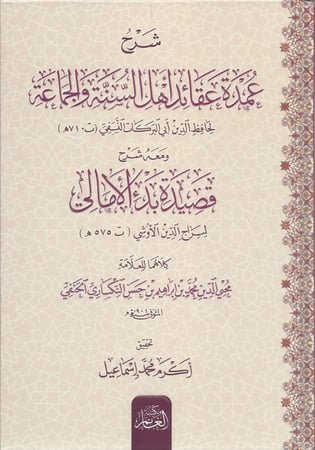 شرح
عمدة عقائد أهل السنة والجماعة
لحافظ الدين أبي البركات النسفي (ت ٧١٠هـ)
ومعه شرح
قصيدة بدء الأمالي
لسراج الدين الأوشي (ت ٥٧٥ هـ)
كلاهما للعلامة
محيي الدين محمد بن إبراهيم بن حسن النكساري الحنفي
تحقيق
أكرم محمد إسماعيل
مكتبة
الغانم